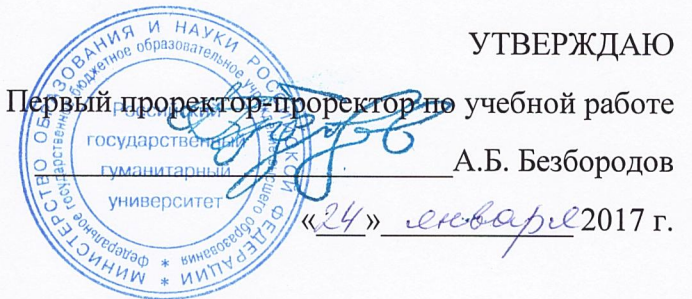 УТВЕРЖДАЮ
Первый проректор-проректор по учебной работе
А.Б. Безбородов
«24» января 2017 г.
МИНИСТЕРСТВО ОБРАЗОВАНИЯ И НАУКИ РОССИЙСКОЙ ФЕДЕРАЦИИ *
Федеральное государственное бюджетное образовательное учреждение высшего образования *
Российский
государственный
гуманитарный
университет